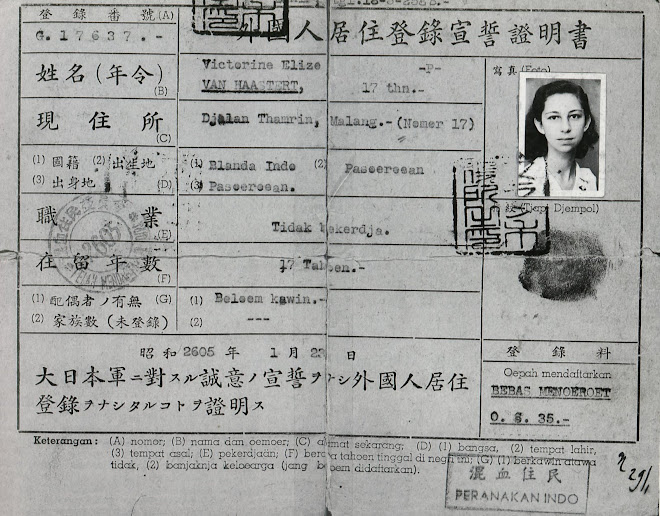 登錄番號(A)
G.17637.-
外國人居住登錄宣誓證明書
姓名(年令)
(B)
Victorine Elize -P-
VAN HAASTERT, 17 thn.-
寫眞(Foto)
現住所
(C)
Djalan Thamrin, Malang.-(Nomer 17)
(1) 國籍 (2) 出生地
(3) 出身地 (D)
(1) Blanda Indo (2) Pasoeroean
(3) Pasoeroean.
(Tjap Djempol)
職業
(E)
Tidak bekerdja.
在留年數
(F)
17 Tahoen.-
(1) 配偶者ノ有無 (G)
(2) 家族數(未登錄)
(1) Beloem kawin.-
(2) ---
昭和2605年 1月23日
大日本軍ニ對スル誠意ノ宣誓ヲナシ外國人居住
登錄ヲナシタルコトヲ證明ス
登錄料
Oepah mendaftarkan
BEBAS MENOEROET
O. S. 35.-
Keterangan: (A) nomer; (B) nama dan oemoer; (C) alamat sekarang; (D) (1) bangsa, (2) tempat lahir,
(3) tempat asal; (E) pekerdjaän; (F) berapa tahoen tinggal di negri ini; (G) (1) berkawin atawa
tidak, (2) banjaknja keloearga (jang beloem didaftarkan).
混血住民
PERANAKAN INDO